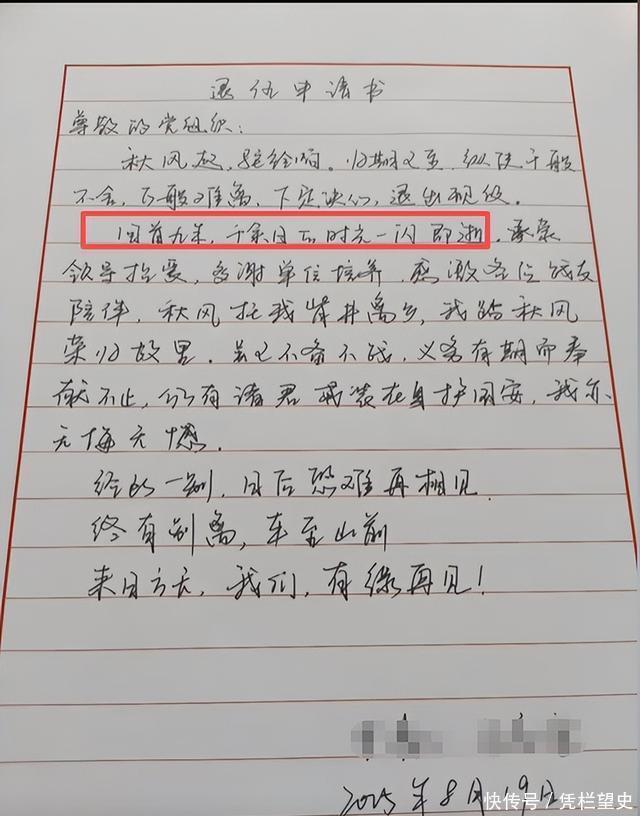 退伍申请书
尊敬的党组织:
秋风起,驼铃响。归期又至,纵使千般
不舍,万般难离,下定决心,退出现役。
回首九年,千余日 时光一闪即逝,承蒙
领导抬爱,多谢单位培养,感激各位战友
陪伴,秋风托我背井离乡,我踏秋风
荣归故里。 不备不战,义务有期而奉
献不止,仍有诸君戎装在身护国安,我亦
无悔无憾。
终的一别,日后恐难再相见
终有别离,车至山前
来日方长,我们,有缘再见!
2025年8月19日
快传号/凭栏望史